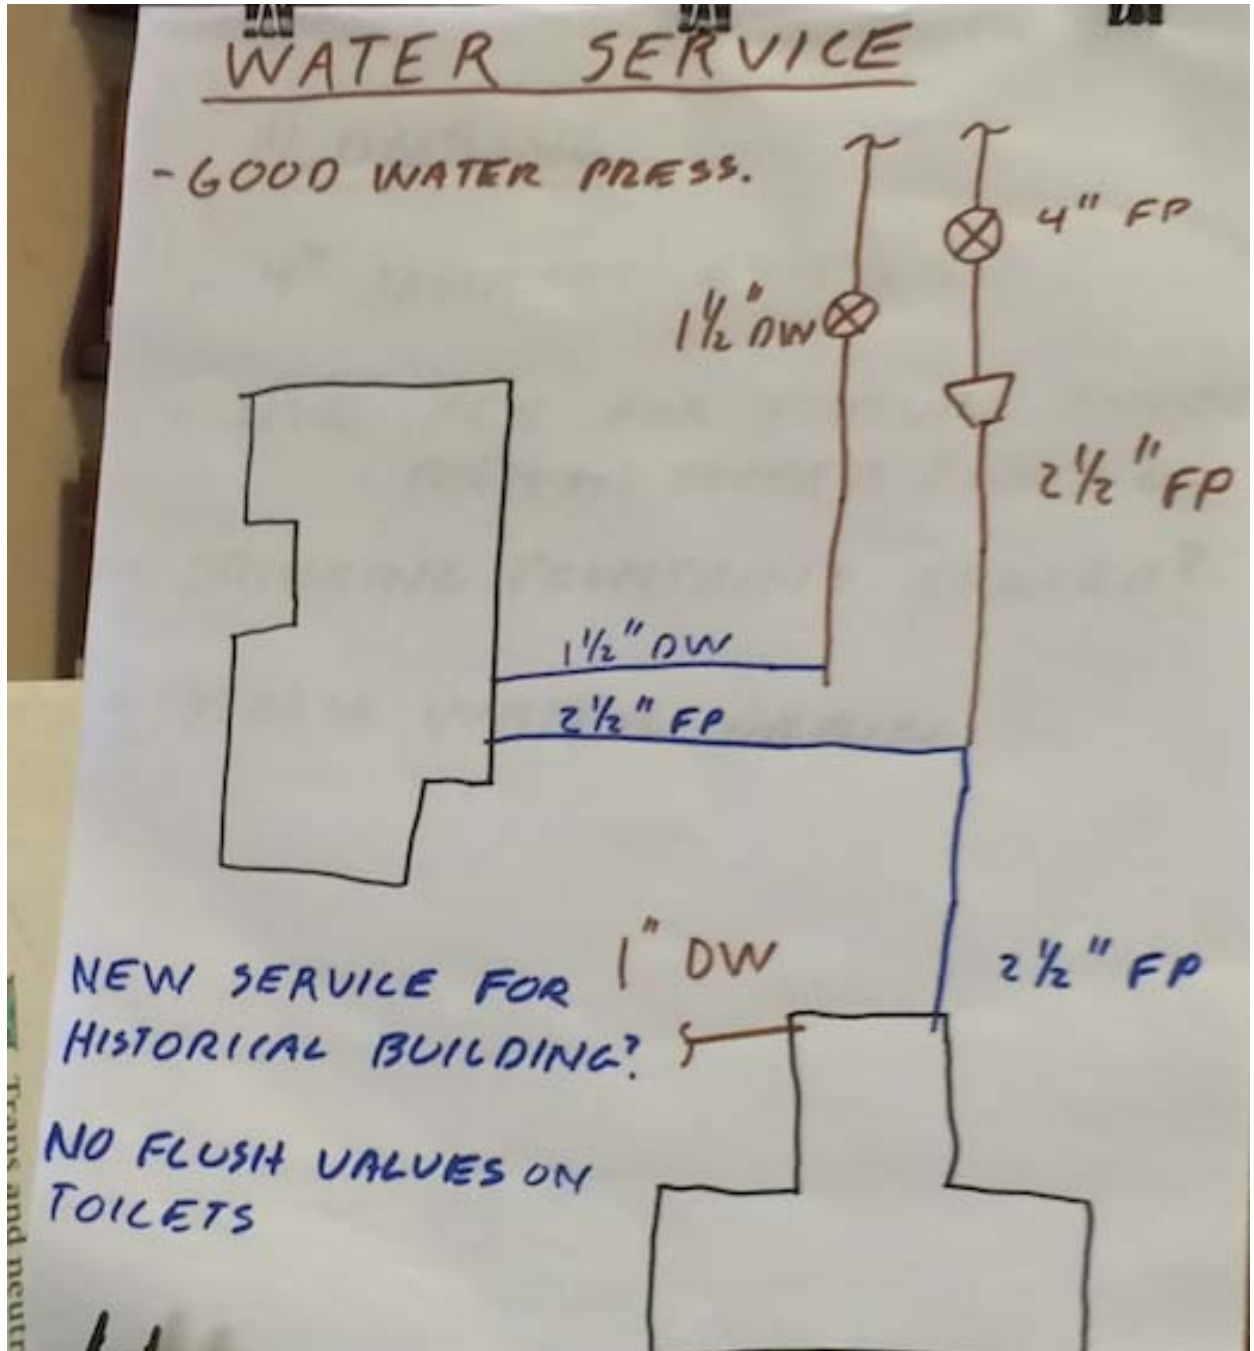 WATER SERVICE
- GOOD WATER PRESS.
4" FP
1½" DW
2½" FP
1½" DW
2½" FP
NEW SERVICE FOR
HISTORICAL BUILDING?
1" DW
2½" FP
NO FLUSH VALUES ON
TOILETS
Trans and neutr